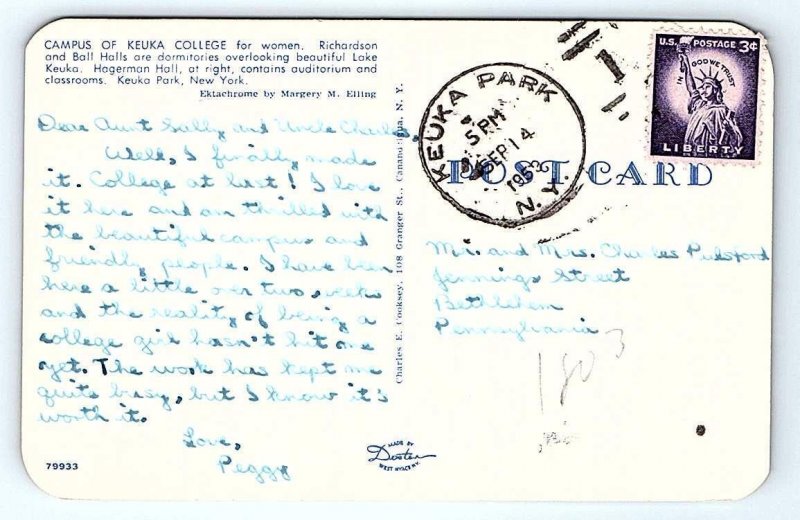 CAMPUS OF KEUKA COLLEGE for women. Richardson
and Ball Halls are dormitories overlooking beautiful Lake
Keuka. Hagerman Hall, at right, contains auditorium and
classrooms. Keuka Park, New York.
Ektachrome by Margery M. Elling
Dear Aunt Sally and Uncle Charles,
Well, I finally made
it. College at last! I love
it here and am thrilled with
the beautiful campus and
friendly people. I have been
here a little over two weeks
and the reality of being a
college girl hasn't hit me
yet. The work has kept me
quite busy, but I know it's
worth it.
Love,
Peggy
79933
Charles E. Cooksey, 108 Granger St., Canandaigua, N. Y.
MADE BY
Dexter
WEST NYACK N.Y.
KEUKA PARK
5 PM
SEP 14
N. Y.
1
U.S. POSTAGE 3¢
IN GOD WE TRUST
LIBERTY
POST CARD
Mr. and Mrs. Charles Pulsford
Jennings Street
Bethlehem
Pennsylvania
1803